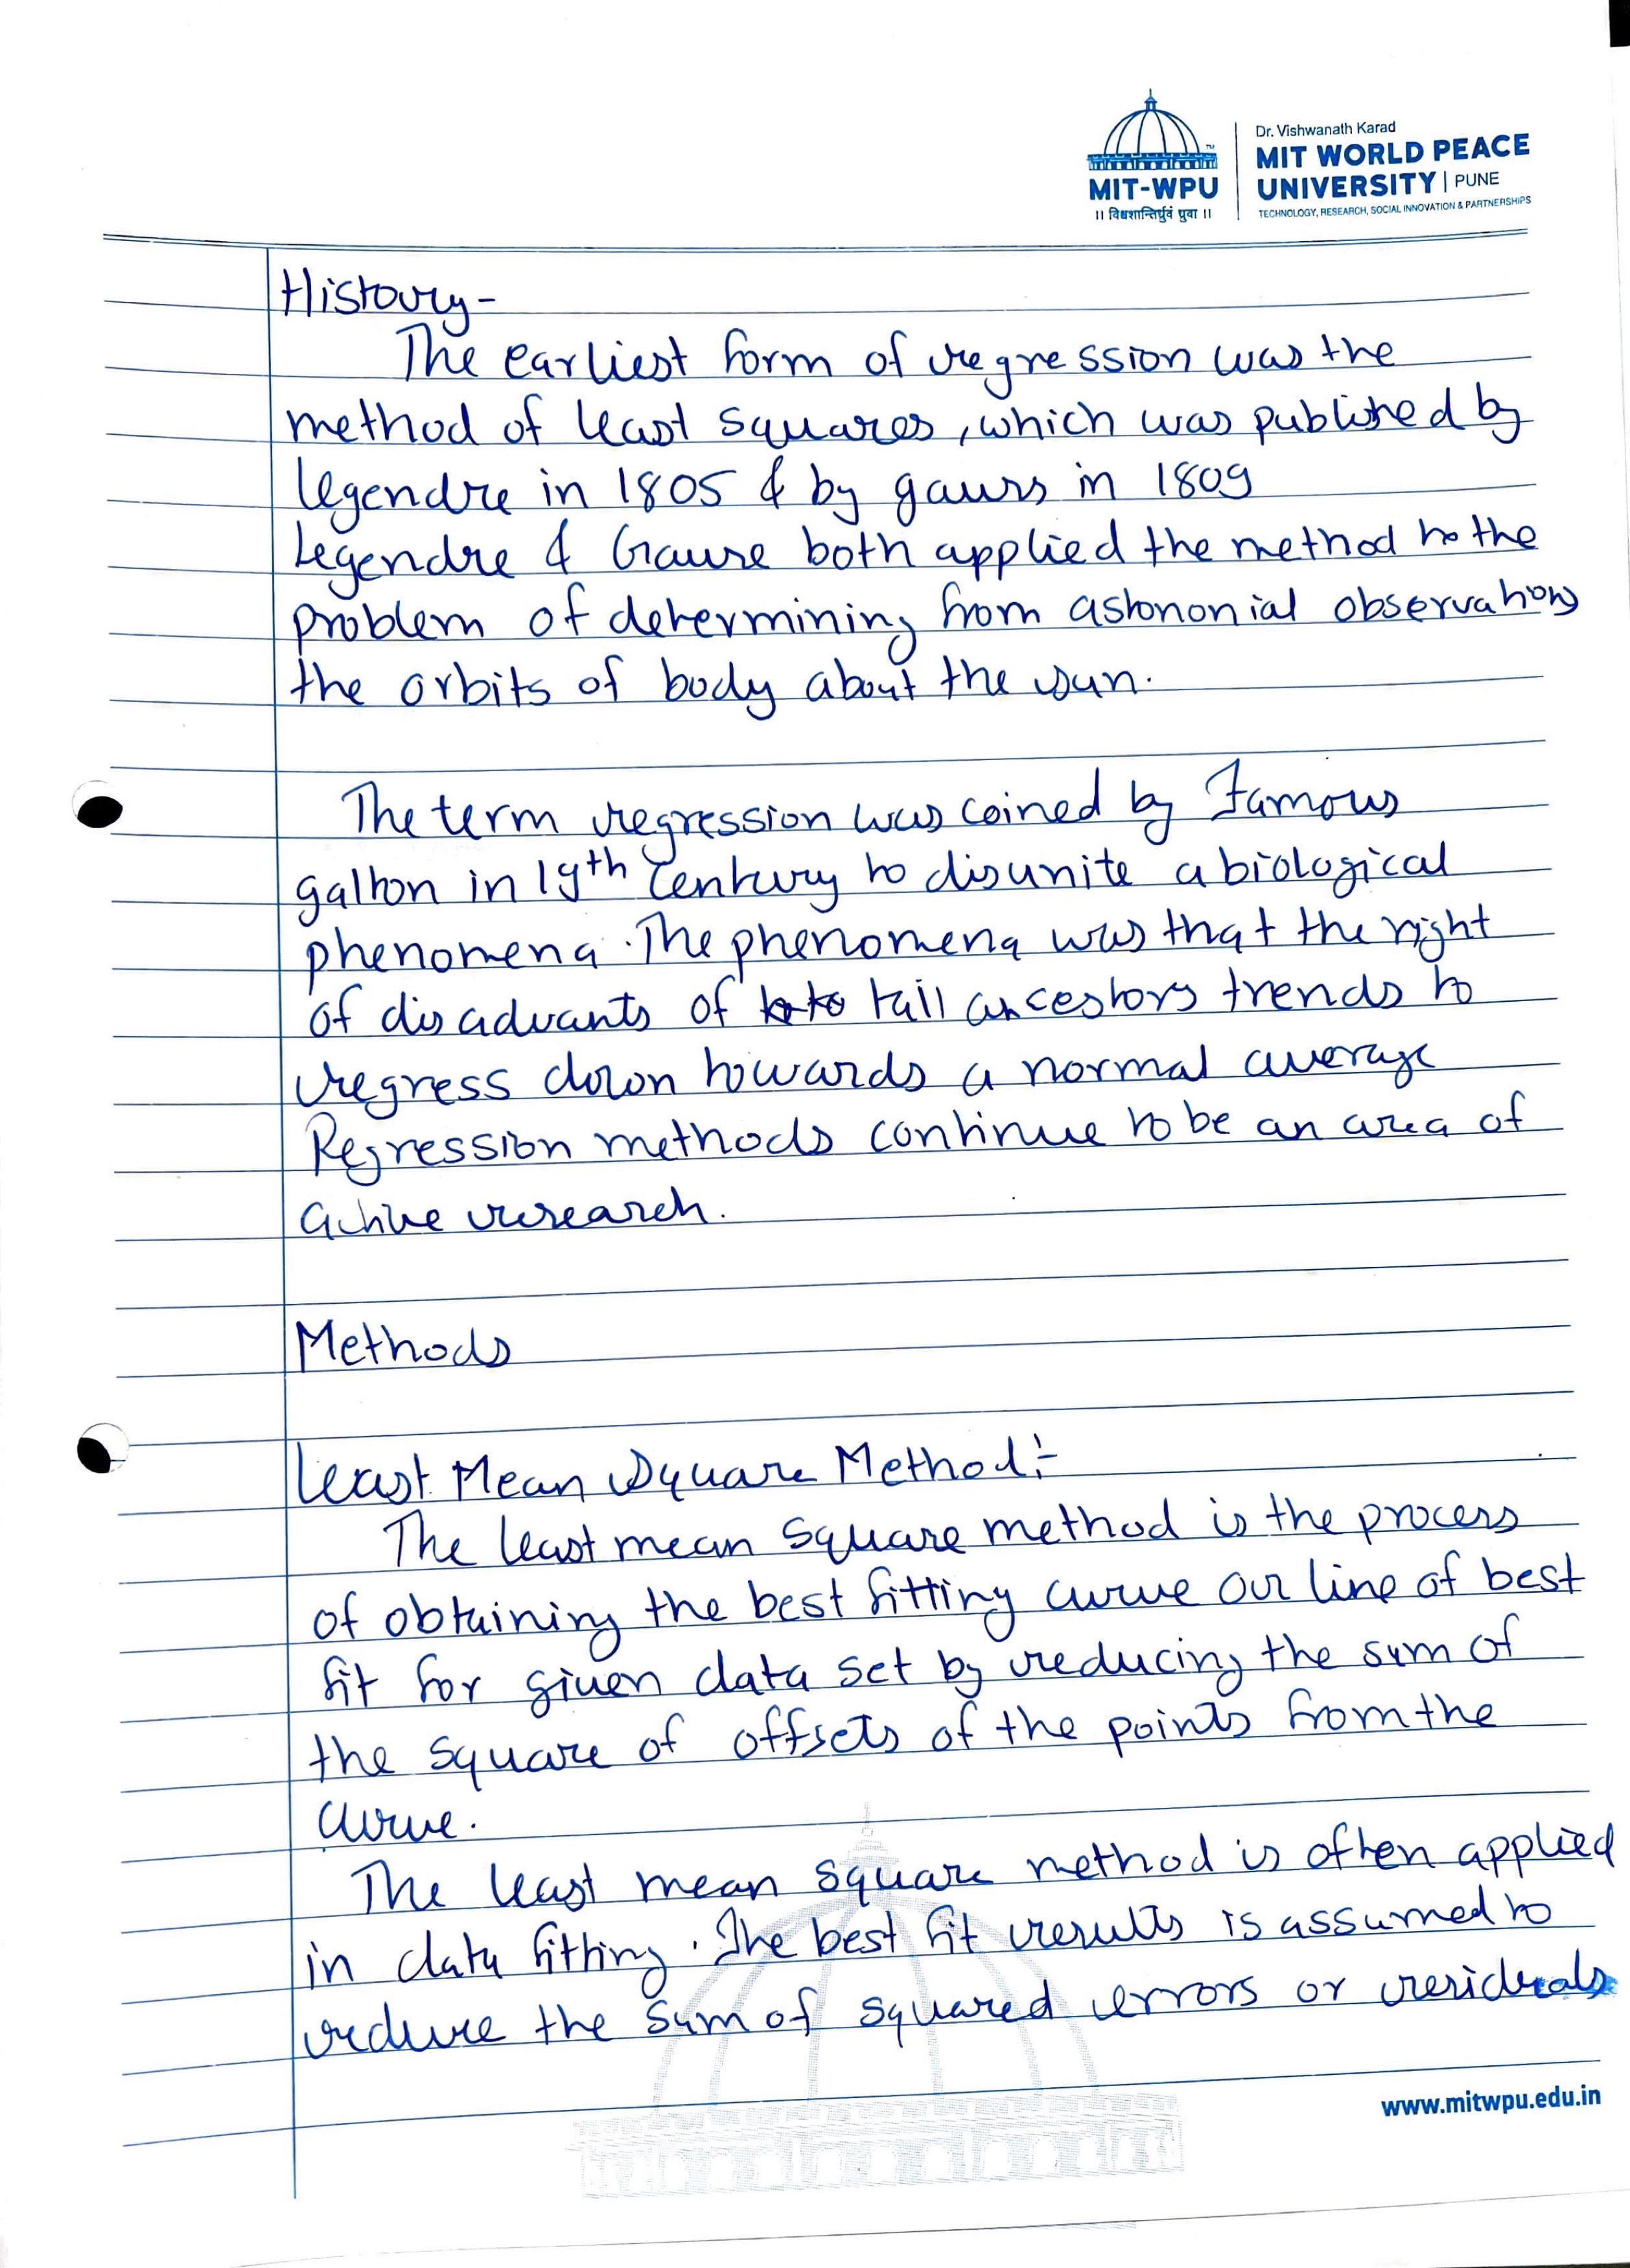 Dr. Vishwanath Karad
MIT WORLD PEACE
UNIVERSITY | PUNE
TECHNOLOGY, RESEARCH, SOCIAL INNOVATION & PARTNERSHIPS
MIT-WPU
॥ विश्वशान्तिर्ध्रुवं ध्रुवा ॥
History-
The earliest form of regression was the
method of least squares, which was published by
legendre in 1805 & by gauss in 1809
Legendre & Gause both applied the method to the
problem of determining from astononial observations
the orbits of body about the sun.
The term regression was coined by Famous
galton in 19th Century to disunite a biological
phenomena. The phenomena was that the right
of disadvants of to tall ancestors trends to
regress down towards a normal average
Regression methods continue to be an area of
active research.
Methods
Least Mean Square Method:-
The least mean square method is the process
of obtaining the best fitting curve our line of best
fit for given data set by reducing the sum of
the square of offsets of the points from the
curve.
The least mean square method is often applied
in data fitting. The best fit results is assumed to
reduce the sum of squared errors or residuals
www.mitwpu.edu.in